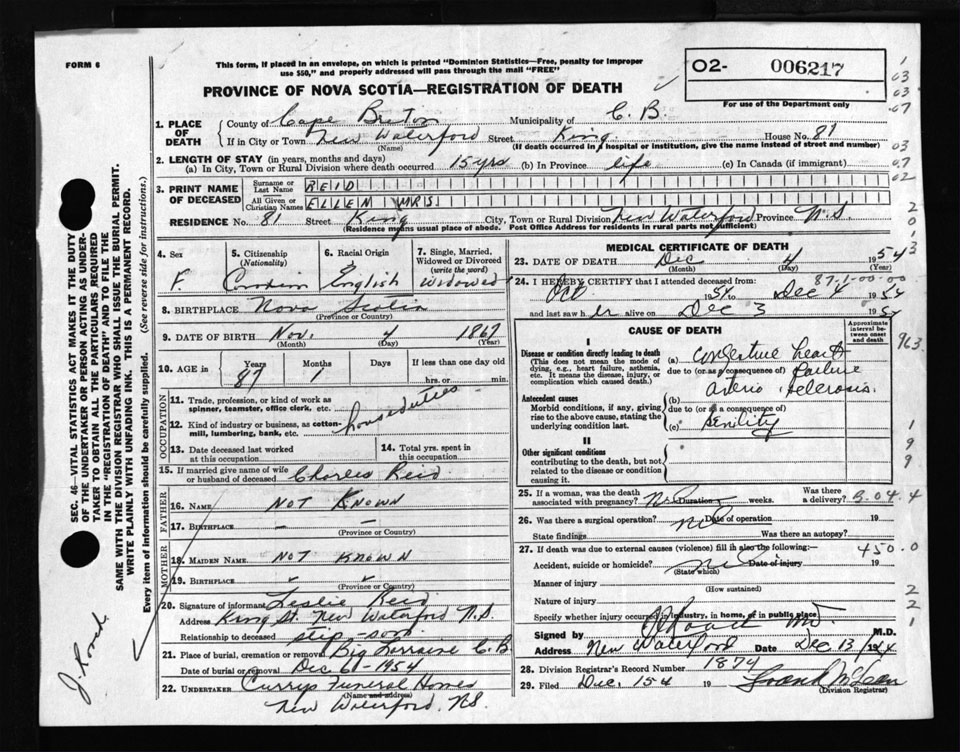 FORM 6
This form, if placed in an envelope, on which is printed "Dominion Statistics—Free, penalty for improper
use $50," and properly addressed will pass through the mail "FREE"
PROVINCE OF NOVA SCOTIA—REGISTRATION OF DEATH
O2- 006217
For use of the Department only
1. PLACE OF DEATH
County of Cape Breton Municipality of C. B.
If in City or Town New Waterford Street King House No. 81
(Name) (If death occurred in a hospital or institution, give the name instead of street and number)
2. LENGTH OF STAY (in years, months and days)
(a) In City, Town or Rural Division where death occurred 15 yrs (b) In Province life (c) In Canada (if immigrant)
3. PRINT NAME OF DECEASED
Surname or Last Name REID
All Given or Christian Names ELLEN MRS.
RESIDENCE No. 81 Street King City, Town or Rural Division New Waterford Province N.S.
(Residence means usual place of abode. Post Office Address for residents in rural parts not sufficient)
4. Sex F.
5. Citizenship (Nationality)
6. Racial Origin English
7. Single, Married, Widowed or Divorced (write the word) Widowed
8. BIRTHPLACE Nova Scotia
(Province or Country)
9. DATE OF BIRTH Nov. 4 1867
(Month) (Day) (Year)
10. AGE in Years Months Days If less than one day old
87 1 hrs. or min.
OCCUPATION
11. Trade, profession, or kind of work as spinner, teamster, office clerk, etc.
house duties
12. Kind of industry or business, as cotton-mill, lumbering, bank, etc.
13. Date deceased last worked at this occupation
14. Total yrs. spent in this occupation
15. If married give name of wife or husband of deceased Charles Reid
FATHER
16. NAME NOT KNOWN
17. BIRTHPLACE - -
(Province or Country)
MOTHER
18. MAIDEN NAME NOT KNOWN
19. BIRTHPLACE
(Province or Country)
20. Signature of informant Leslie Reid
Address King St. New Waterford N.S.
Relationship to deceased step-son
21. Place of burial, cremation or removal Big Lorraine C.B.
Date of burial or removal Dec 6 - 1954
22. UNDERTAKER Currys Funeral Homes
(Name and address)
New Waterford. NS.
MEDICAL CERTIFICATE OF DEATH
23. DATE OF DEATH Dec 4 1954
(Month) (Day) (Year)
24. I HEREBY CERTIFY that I attended deceased from: 87-1-00-00
1954 to Dec 4 1954
and last saw her alive on Dec 3 1954
CAUSE OF DEATH
Approximate interval between onset and death
I
Disease or condition directly leading to death
(This does not mean the mode of dying, e.g., heart failure, asthenia, etc. It means the disease, injury, or complication which caused death.)
(a) congestive heart
due to (or as a consequence of) failure
Antecedent causes
Morbid conditions, if any, giving rise to the above cause, stating the underlying condition last.
(b) arterio sclerosis.
due to (or as a consequence of)
(c) senility
II
Other significant conditions
contributing to the death, but not related to the disease or condition causing it.
25. If a woman, was the death associated with pregnancy? No Duration weeks. Was there a delivery?
26. Was there a surgical operation? Date of operation 19
State findings Was there an autopsy?
27. If death was due to external causes (violence) fill in also the following:— 450.0
Accident, suicide or homicide? Date of injury 19
(State which)
Manner of injury
(How sustained)
Nature of injury
Specify whether injury occurred in industry, in home, or in public place
Signed by M.D.
Address New Waterford Date Dec 13/54
28. Division Registrar's Record Number 1874
29. Filed Dec. 15 54 19
(Division Registrar)
SEC. 46—VITAL STATISTICS ACT MAKES IT THE DUTY
OF THE UNDERTAKER OR PERSON ACTING AS UNDER-
TAKER TO OBTAIN ALL THE PARTICULARS REQUIRED
IN THE "REGISTRATION OF DEATH" AND TO FILE THE
SAME WITH THE DIVISION REGISTRAR WHO SHALL ISSUE THE BURIAL PERMIT.
WRITE PLAINLY WITH UNFADING INK. THIS IS A PERMANENT RECORD.
Every item of information should be carefully supplied. (See reverse side for instructions.)